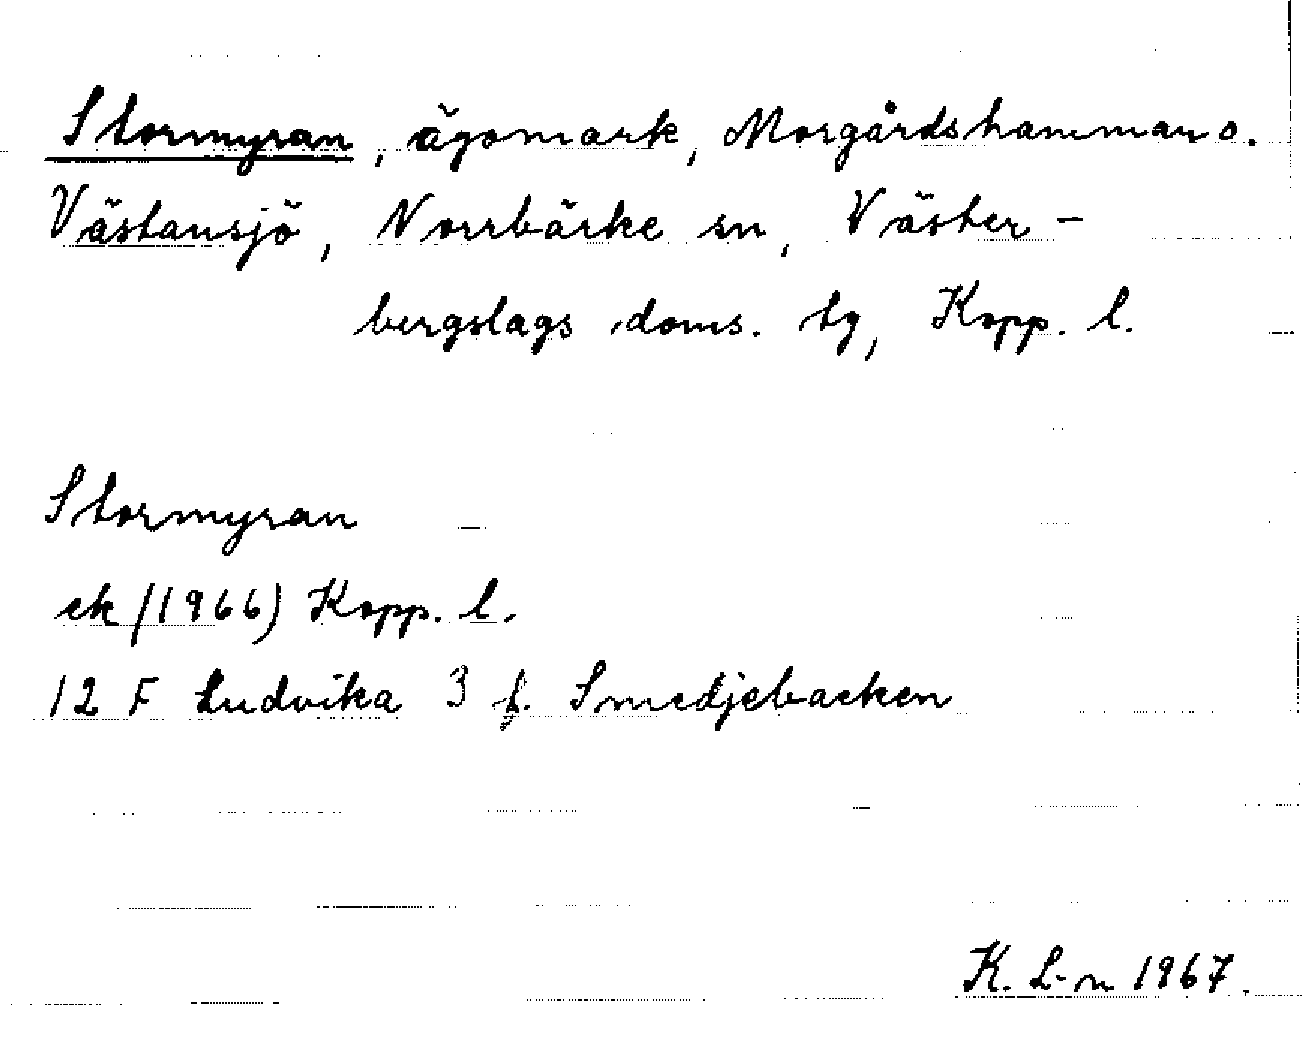 Stormyran, ägomark, Morgårdshammar o.
Västansjö, Norrbärke sn, Väster-
bergslags doms. tg, Kopp. l.
Stormyran
ek (1966) Kopp. l.
12 F Ludvika 3 f. Smedjebacken
K. L-n 1967.